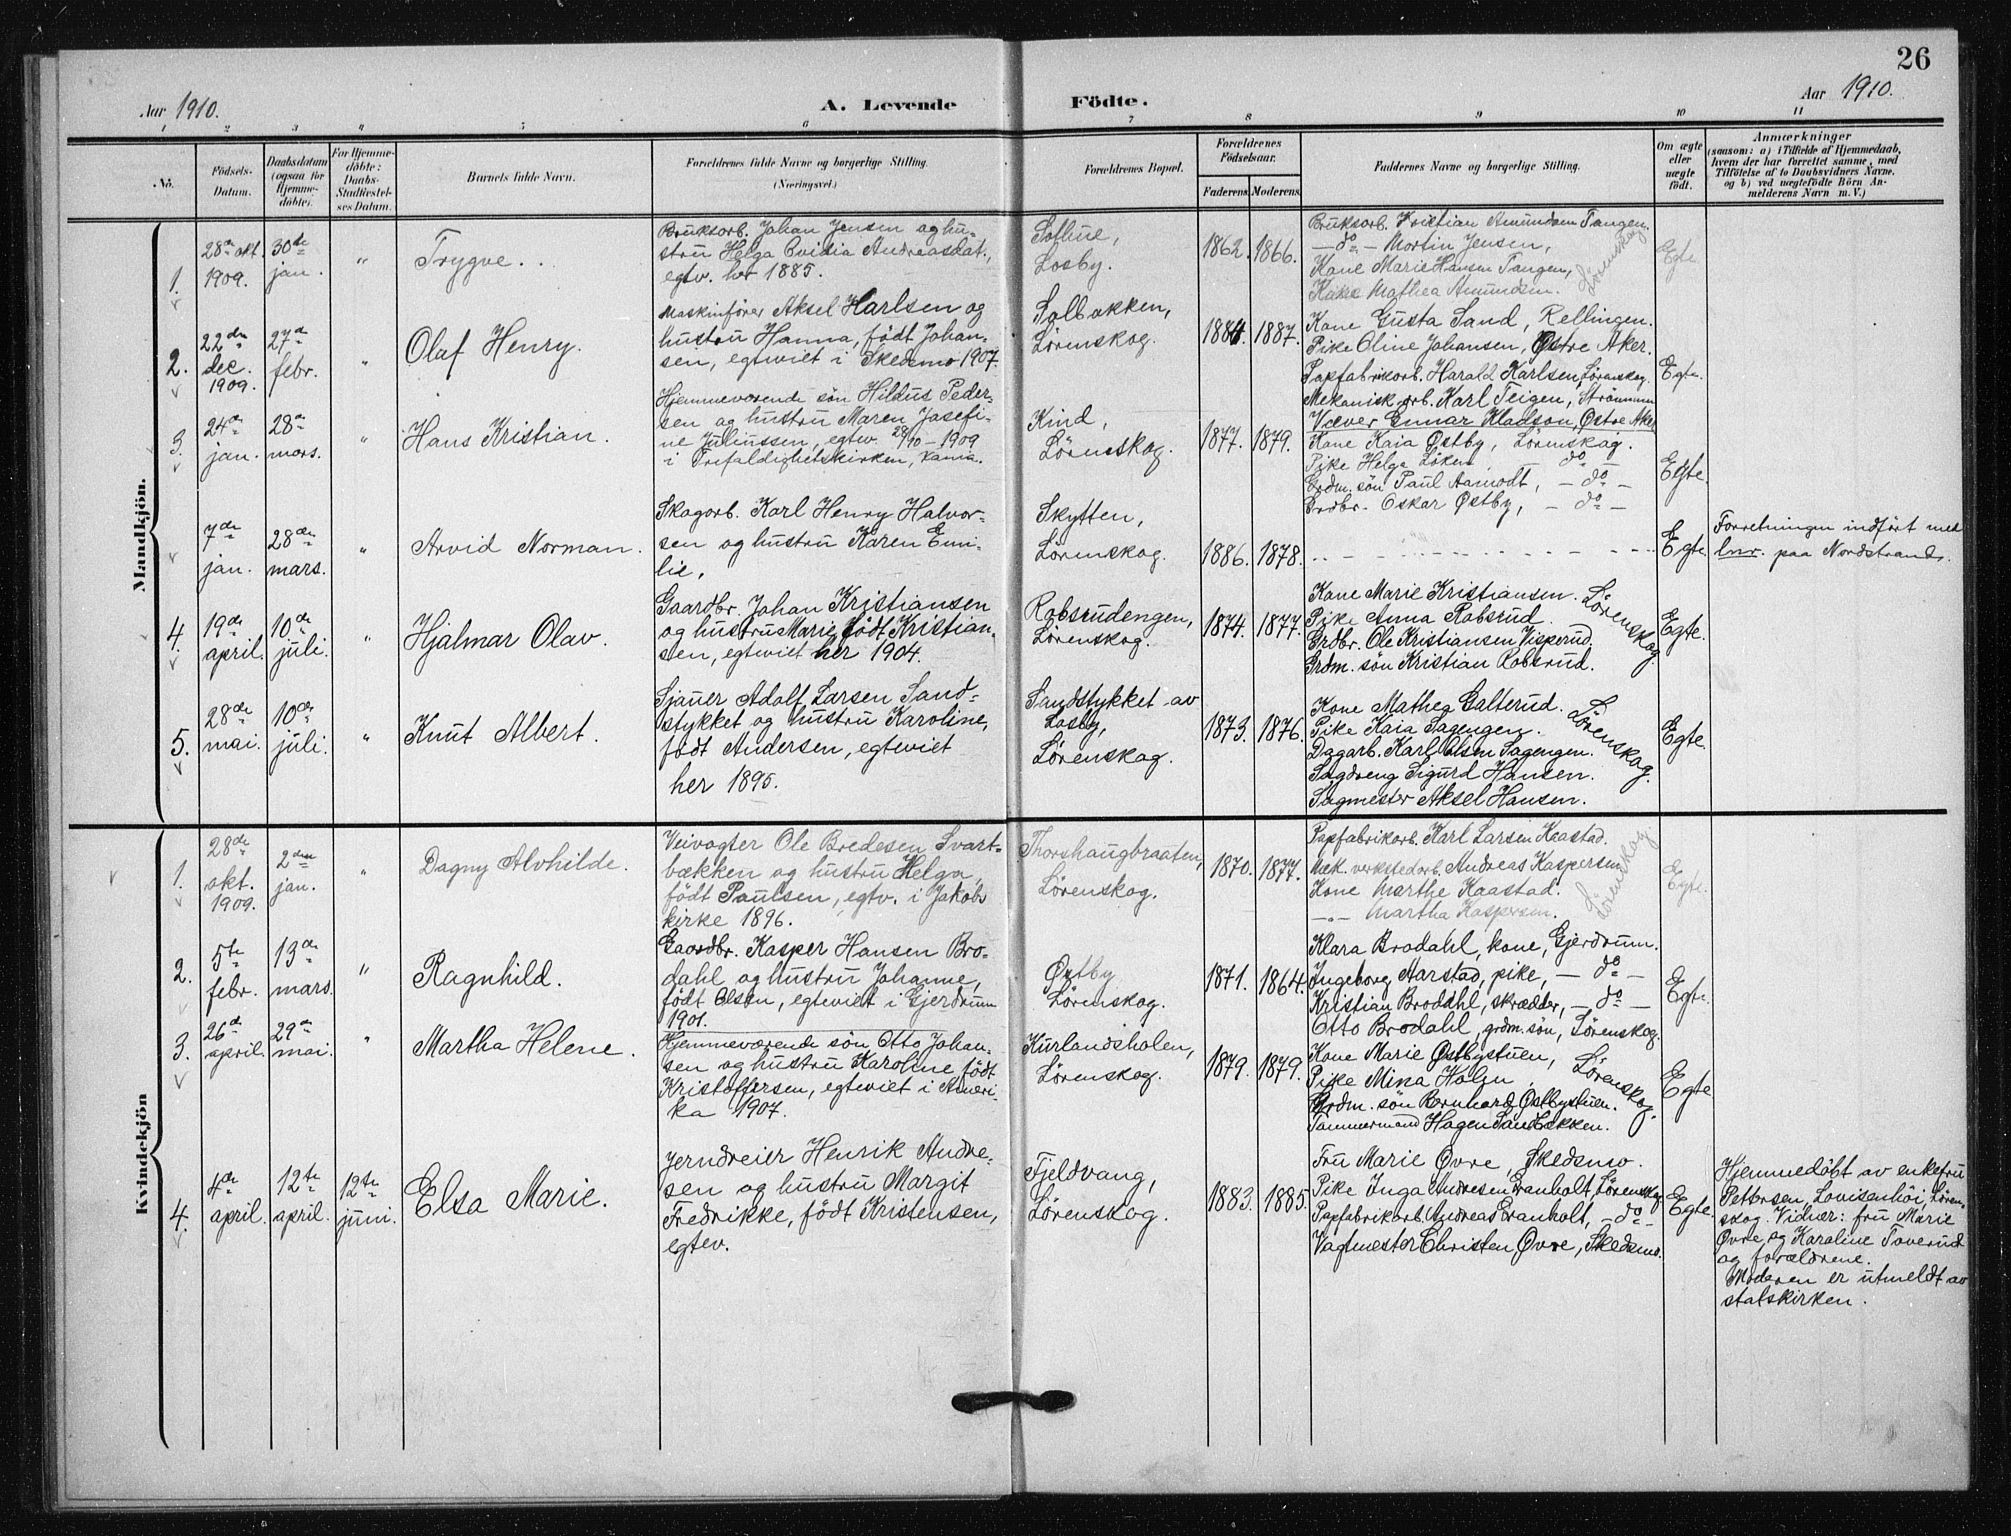 26
Aar 1910.
A. Levende
Födte.
Aar 1910.
1 2 3 4 5 6 7 8 9 10 11
No.
Födsels-
Datum.
Daabsdatum
(ogsaa for
Hjemme-
döbte).
For Hjemme-
döbte:
Daabs-
Stadfæstel-
ses Datum.
Barnets fulde Navn.
Forældrenes fulde Navne og borgerlige Stilling.
(Næringsvei.)
Forældrenes Bopæl.
Forældrenes
Födselsaar.
Faderens.
Moderens.
Faddernes Navne og borgerlige Stilling.
Om ægte
eller
uægte
födt.
Anmærkninger
(saasom: a) i Tilfælde af Hjemmedaab,
hvem der har forrettet samme, med
Tilföielse af to Daabsvidners Navne,
og b) ved uægtefödte Börn An-
melderens Navn m. V.)
Mandkjön.
1.
28de okt.
1909.
30te
jan.
"
Trygve.
Bruksarb. Johan Jensen og hu-
stru Helga Ovidia Andreasdat.,
egtv. her 1885.
Losby.
1862.
1866.
Bruksarb. Kristian Amundsen Tangen.
— do — Martin Jensen,
Kone Marie Hansen Tangen,
Kone Mathea Amundsen.
Lørenskog
Egte.
2.
22de
dec.
1909.
27de
febr.
"
Olaf Henry.
Maskinfører Aksel Karlsen og
hustru Hanna, født Johan-
sen, egteviet i Skedsmo 1907.
Solbakken,
Lørenskog.
1884.
1887.
Kone Gusta Sand, Rellingen.
Pike Oline Johansen, Østre Aker.
Papfabrikarb. Harald Karlsen, Lørenskog.
Mekanisk arb. Karl Teigen, Strømmen
Egte.
3.
24de
jan.
28de
mars.
"
Hans Kristian.
Hjemmeværende søn Hildus Peder-
sen og hustru Maren Josefi-
ne Juliussen, egtv. 28/10 - 1909
i Trefaldighetskirken, Kania.
Kind,
Lørenskog.
1877.
1879.
Væver Gunnar Kladson, Østre Aker
Kone Kaia Østby, Lørenskog.
Pike Helga Løken — do —
Grdm. søn Paul Aamodt, — do —
Brdbr. Oskar Østby, — do —
Egte.
7de
jan.
28de
mars.
"
Arvid Norman.
Skogarb. Karl Henry Halvor-
sen og hustru Karen Emi-
lie.
Skytten,
Lørenskog.
1886.
1878.
Egte.
Forretningen indført med
lnr. paa Nordstrand.
4.
19de
april.
10de
juli.
"
Hjalmar Olav.
Gaardbr. Johan Kristiansen
og hustru Marie, født Kristian-
sen, egteviet her 1904.
Robsrudengen,
Lørenskog.
1874.
1877.
Kone Marie Kristiansen.
Pike Anna Robsrud.
Grdbr. Ole Kristiansen Visperud.
Grdm. søn Kristian Robsrud.
Lørenskog.
Egte.
5.
28de
mai.
10de
juli.
"
Knut Albert.
Sjauer Adolf Larsen Sand-
stykket og hustru Karoline,
født Andersen, egteviet
her 1895.
Sandstykket av
Losby,
Lørenskog.
1873.
1876.
Kone Mathea Galterud.
Pike Kaia Sagengen.
Dagarb. Karl Olsen Sagengen.
Sagdreng Sigurd Hansen.
Sagmester Aksel Hansen.
Lørenskog.
Egte.
Kvindekjön
1.
28de
okt.
1909.
2den
jan.
"
Dagny Alvhilde.
Veivogter Ole Bredesen Svart-
bækken og hustru Helga,
født Paulsen, egtv. i Jakobs
kirke 1896.
Thorshaugbraaten,
Lørenskog.
1870.
1877.
Papfabrikarb. Karl Larsen Kaastad.
Mek. verkstedarb. Andreas Kaspersen,
Kone Marthe Kaastad.
—"— Martha Kaspersen.
Lørenskog
Egte.
2.
5te
febr.
13de
mars.
"
Ragnhild.
Gaardbr. Kasper Hansen Bro-
dahl og hustru Johanne,
født Olsen, egteviet i Gjerdrum
1901.
Østby
Lørenskog.
1871.
1864.
Klara Brodahl, kone, Gjerdrum.
Ingeborg Aarstad, pike, — do —
Kristian Brodahl, skrædder, — do —
Otto Brodahl, grdm. søn, Lørenskog.
Egte.
3.
26de
april.
29de
mai.
"
Martha Helene.
Hjemmeværende søn Otto Johan-
sen og hustru Karoline født
Kristoffersen, egteviet i Ameri-
ka 1907.
Kurlandsholen,
Lørenskog.
1879.
1879.
Kone Marie Østbystuen,
Pike Mina Holm,
Grdm. søn Bernhard Østbystuen.
Tømmermand Hagen Sandbakken.
Lørenskog.
Egte
4.
4de
april.
12te
april.
12te
juni.
Elsa Marie.
Jerndreier Henrik Andre-
sen og hustru Margit
Fredrikke, født Kristensen,
egtev.
Fjeldvang,
Lørenskog.
1883.
1885.
Fru Marie Øvre, Skedsmo.
Pike Inga Andresen Granholt, Lørenskog
Papfabrikarb. Andreas Granholt, — do —
Vagtmester Christen Øvre, Skedsmo.
Egte.
Hjemmedøbt av enkefru
Petersen, Lovisenhøi, Løren-
skog. Vidner: fru Marie
Øvre og Karoline Toverud
og forældrene.
Moderen er utmeldt av
statskirken.